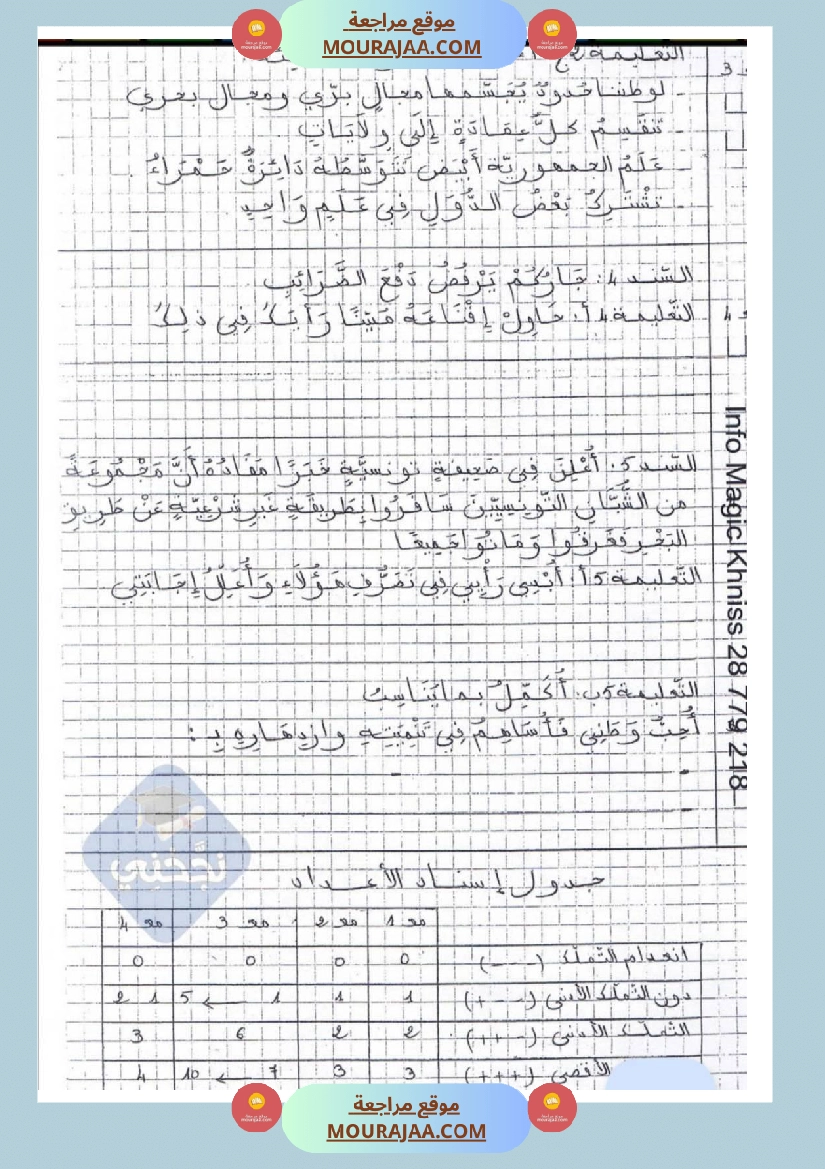 موقع مراجعة
MOURAJAA.COM
مع 3
- لوطننا حُدودٌ يُجَسِّمُها مجالٍ برّي ومجال بحري
- تَنْقَسِمُ كلُّ عِمَادَةٍ إِلَى وِلَايَاتٍ
- عَلَمُ الجمهوريّة أَبْيَض تَتَوَسَّطُهُ دَائِرَةٌ حَمْرَاءُ .
- تَشْتَرِكُ بَعْضُ الدُّوَلِ فِي عَلَمٍ وَاحِدٍ
السّند 4: جَارُكُمْ يَرْفُضُ دَفْعَ الضَّرَائِبِ
التّعليمة 4 أ: حَاوِلْ إِقْنَاعَهُ مُبَيِّنًا رَأْيَكَ فِي ذلِكَ
مع 4
السّند 5: أُعْلِنَ فِي صَحِيفَةٍ تونسيَّةٍ خَبَرًا مَفَادُهُ أَنَّ مَجْمُوعَةً
من الشَّبَّانِ التّونِسِيِّينَ سَافَرُوا بِطَرِيقَةٍ غَيرِ شَرْعِيَّةٍ عَنْ طَرِيقِ
البَحْرِ فَغَرِقُوا وَمَاتُوا جَمِيعًا
التّعليمة 5 أ: أُبْدِي رَأْيِي فِي تَصَرُّفِ هَؤُلَاءِ وَأُعَلِّلُ إِجَابَتِي
التّعليمة 5 ب: أُكَمِّلُ بما يُنَاسِبُ
أُحِبُّ وَطَنِي فَأُسَاهِمُ فِي تَنْمِيَتِهِ وازدهاره بِـ :
Info Magic Khniss 28 779 218
نجّحني
جدول إسناد الأعداد
مع 1 مع 2 مع 3 مع 4
انعدام التّملّك (---) 0 0 0 0
دون التّملّك الأدنى (+--) 1 1 1 ← 5 1 2
التّملّك الأدنى (++-) 2 2 6 3
الأقصى (+++) 3 3 7 ← 10 4
موقع مراجعة
MOURAJAA.COM